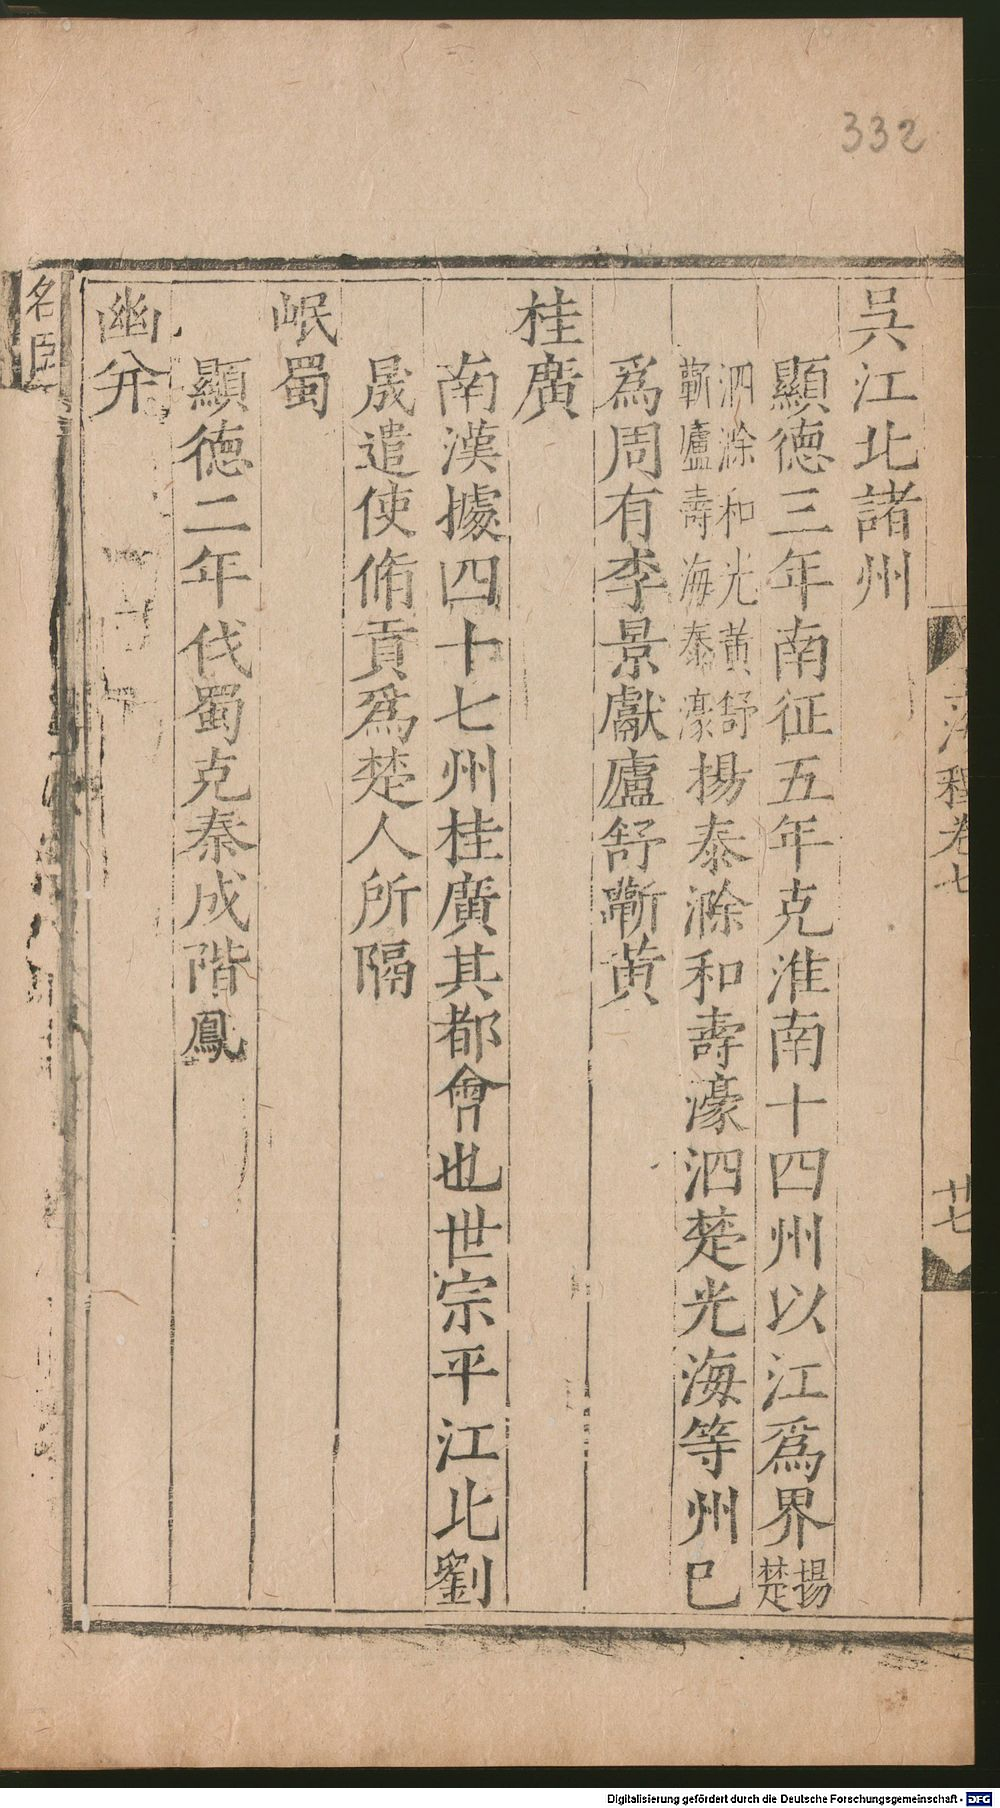 332
呉江北諸州
顯德三年南征五年克淮南十四州以江爲界揚楚
泗滁和光黄舒
蘄廬壽海泰濠
揚泰滁和壽濠泗楚光海等州已
爲周有李景獻廬舒蘄黄
桂廣
南漢據四十七州桂廣其都會也世宗平江北劉
晟遣使脩貢爲楚人所隔
岷蜀
顯德二年伐蜀克秦成階鳳
幽并
卷七
廿七
名臣
Digitalisierung gefördert durch die Deutsche Forschungsgemeinschaft - DFG